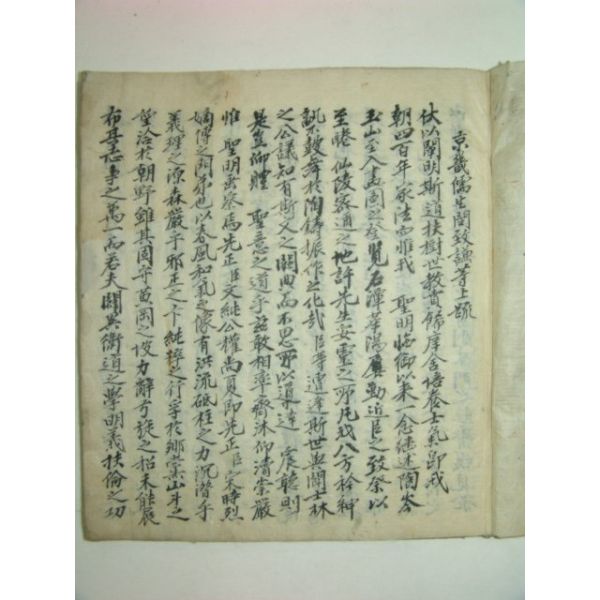 京畿儒生閔致謙等上疏
伏以闡明斯道扶樹世敎賁餙庠舍培養士氣卽我
朝四百年家法而惟我 聖明臨御以來一念繼述陶峯
玉山至入畫圖之登覽石潭華陽屢勤近臣之致祭以
至睠仙陵密邇之地許先生妥靈之所凡我八方衿紳
孰不鼓舞於陶鑄振作之化哉臣等連達斯世與聞士林
之公議知有斯文之闕典而不思所以導達 宸聽則
是豈仰體 聖意之道乎玆敢相率齋沐仰清崇嚴
惟 聖明垂察焉先正臣文純公權尙夏卽先正臣宋時烈
嫡傳之因也以春風和氣之像有洪流砥柱之力沉潜乎
義理之源森嚴乎邪正之卞純粹之行孚於鄕黨山斗之
望洽於朝野雖其固守黃岡之坡力辭弓旌之招未能展
布其志事之萬一而若夫闢異衛道之學明義扶倫之功